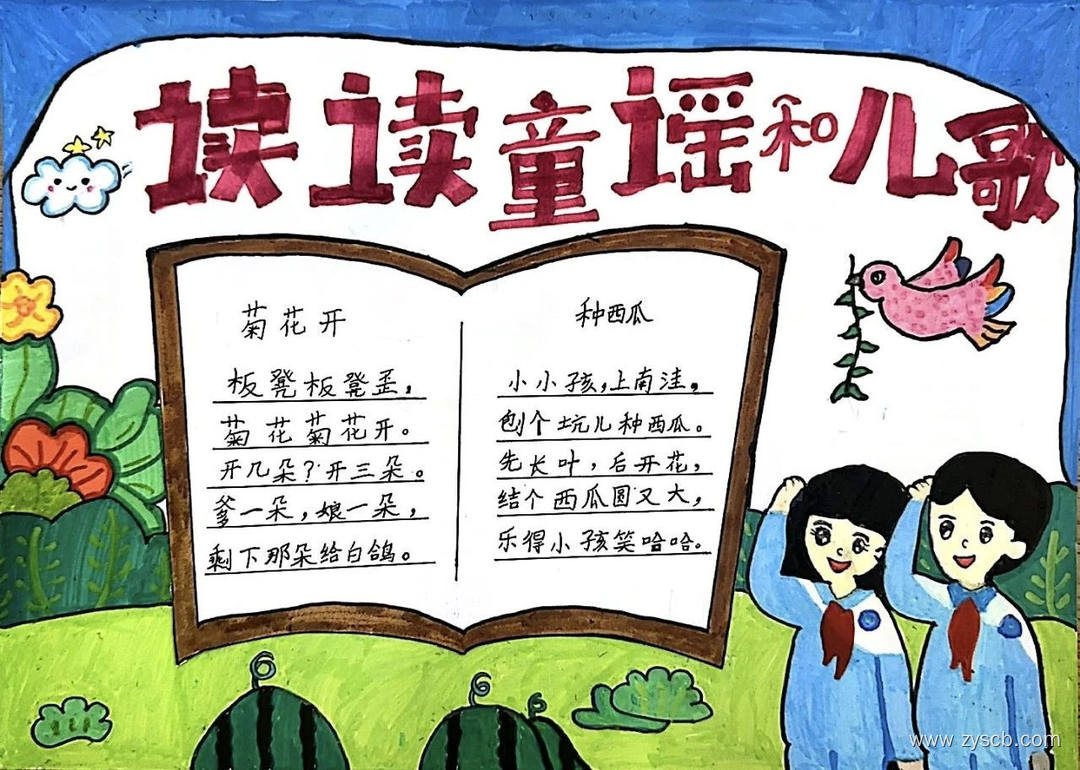 读读童谣和儿歌
菊花开
板凳板凳歪，
菊花菊花开。
开几朵？开三朵。
爹一朵，娘一朵，
剩下那朵给白鸽。
种西瓜
小小孩，上南洼，
刨个坑儿种西瓜。
先长叶，后开花，
结个西瓜圆又大，
乐得小孩笑哈哈。
www.zyscb.com